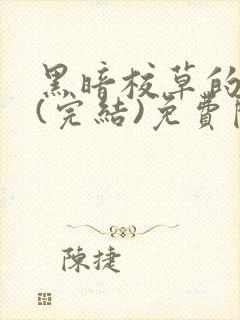 黑暗校草的
(完結)免費
陳捷